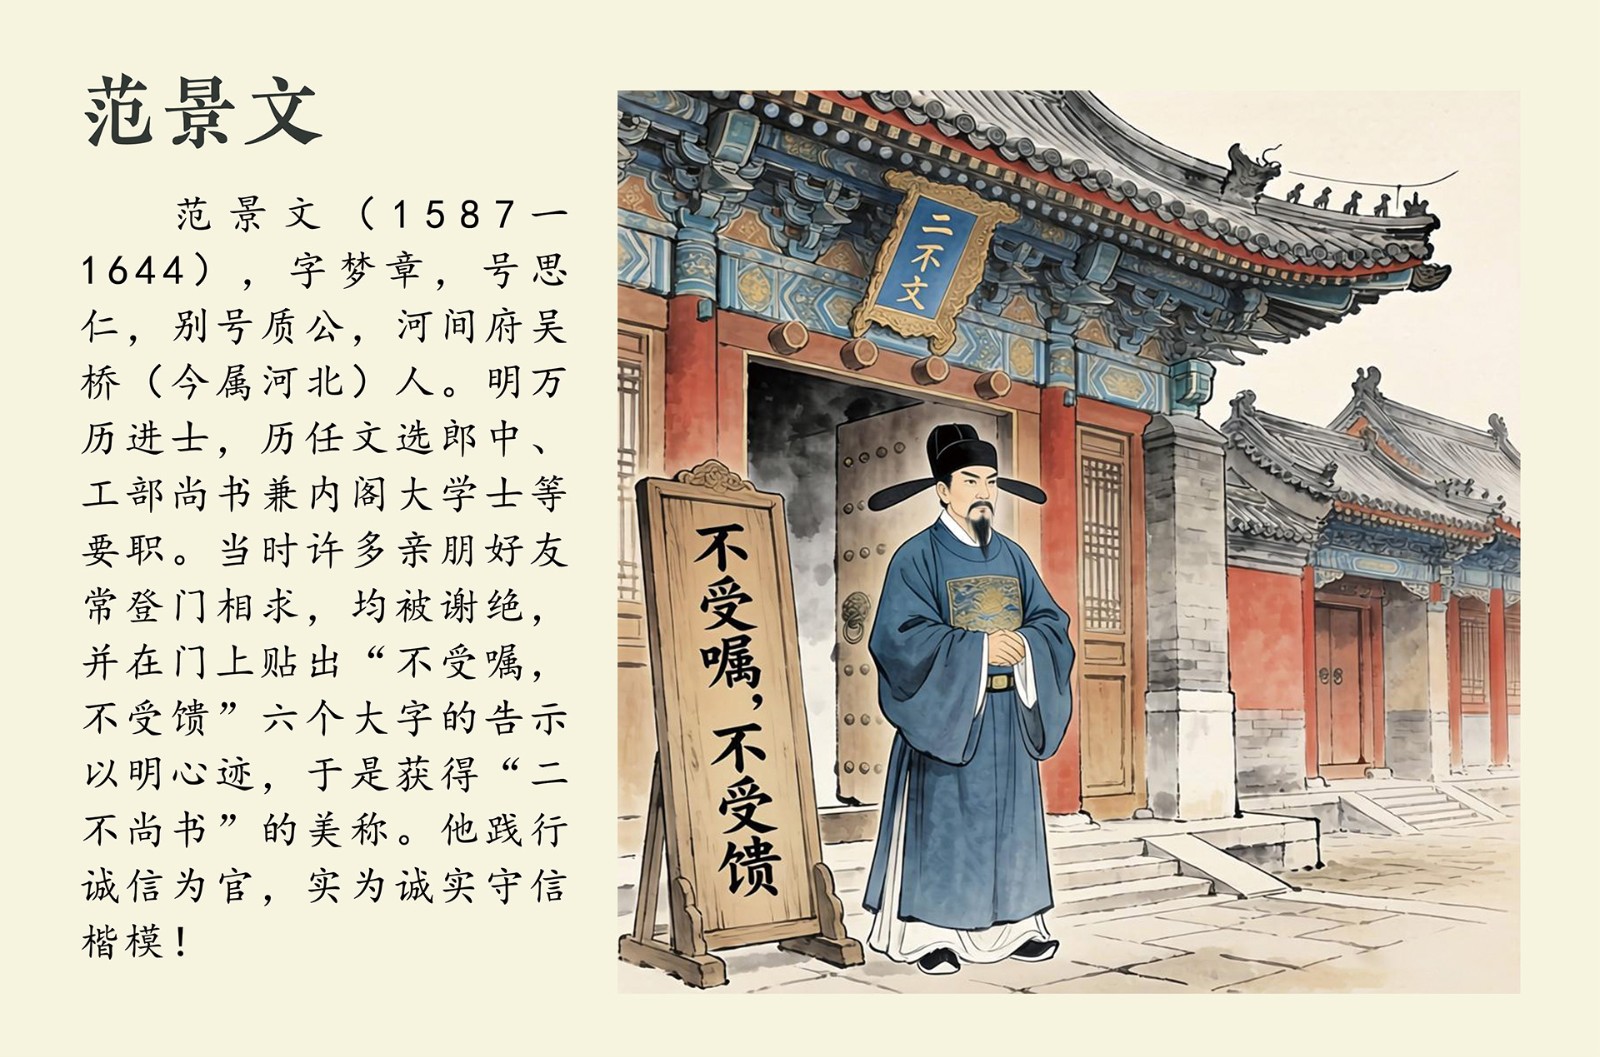 范景文
范景文（1587一
1644），字梦章，号思
仁，别号质公，河间府吴
桥（今属河北）人。明万
历进士，历任文选郎中、
工部尚书兼内阁大学士等
要职。当时许多亲朋好友
常登门相求，均被谢绝，
并在门上贴出“不受嘱，
不受馈”六个大字的告示
以明心迹，于是获得“二
不尚书”的美称。他践行
诚信为官，实为诚实守信
楷模！
二不文
不受嘱，不受馈